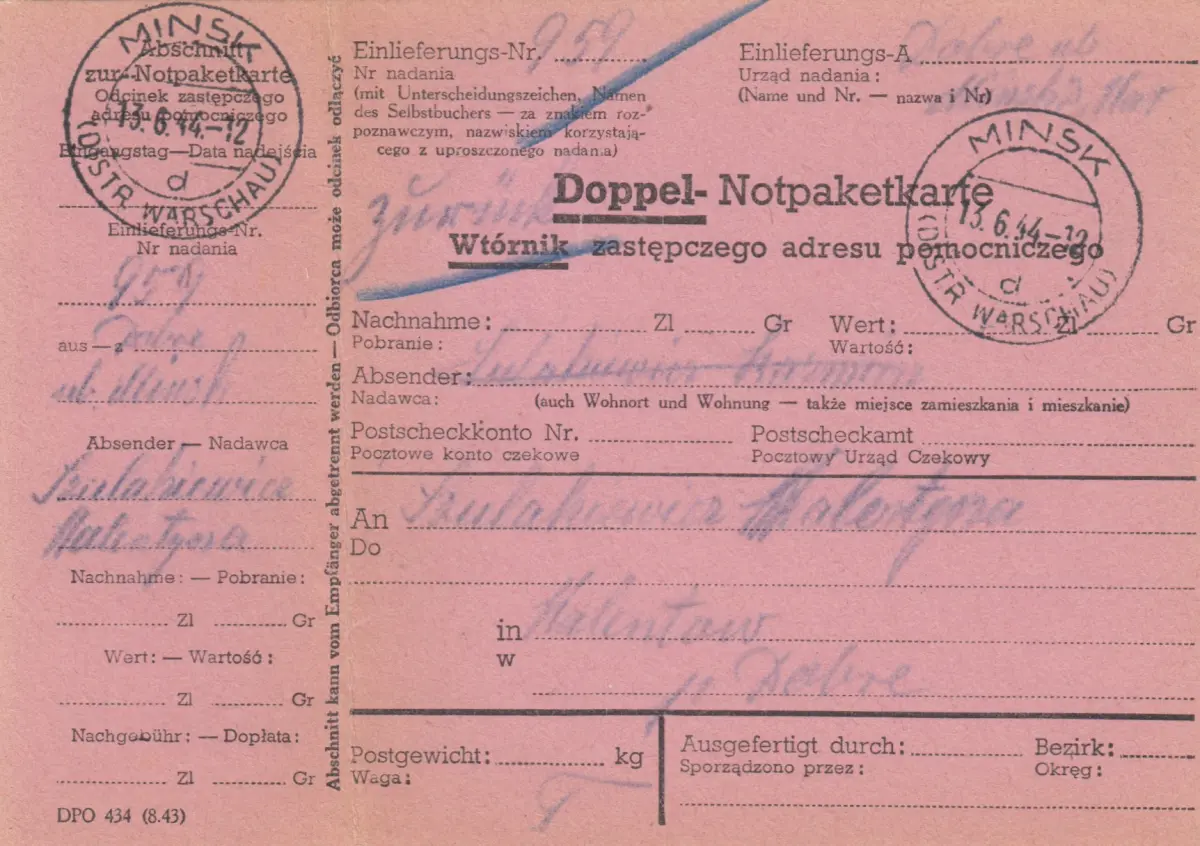 MINSK
13.6.44.-12
d
(DISTR WARSCHAU)
Abschnitt
zur Notpaketkarte
Odcinek zastępczego
adresu pomocniczego
Eingangstag—Data nadejścia
Einlieferungs-Nr.
Nr nadania
959
aus — z Dabre
ub. Minsk
Absender — Nadawca
Szulakiewicz
Nachnahme: — Pobranie:
Zl Gr
Wert: — Wartość:
Zl Gr
Nachgebühr: — Dopłata:
Zl Gr
DPO 434 (8.43)
Abschnitt kann vom Empfänger abgetrennt werden — Odbiorca może odcinek odłączyć
Einlieferungs-Nr. 959
Nr nadania
(mit Unterscheidungszeichen, Namen
des Selbstbuchers — za znakiem roz-
poznawczym, nazwiskiem korzystają-
cego z uproszczonego nadania)
Einlieferungs-A Dabre ub
Urząd nadania:
(Name und Nr. — nazwa i Nr)
MINSK
13.6.44-12
d
(DISTR WARSCHAU)
zurück
Doppel- Notpaketkarte
Wtórnik zastępczego adresu pomocniczego
Nachnahme: Zl Gr Wert: Zl Gr
Pobranie: Wartość:
Absender: Szulakiewicz
Nadawca: (auch Wohnort und Wohnung — także miejsce zamieszkania i mieszkanie)
Postscheckkonto Nr. Postscheckamt
Pocztowe konto czekowe Pocztowy Urząd Czekowy
An Szulakiewicz
Do
in
w
Dabre
Postgewicht: kg
Waga:
T
Ausgefertigt durch: Bezirk:
Sporządzono przez: Okręg: